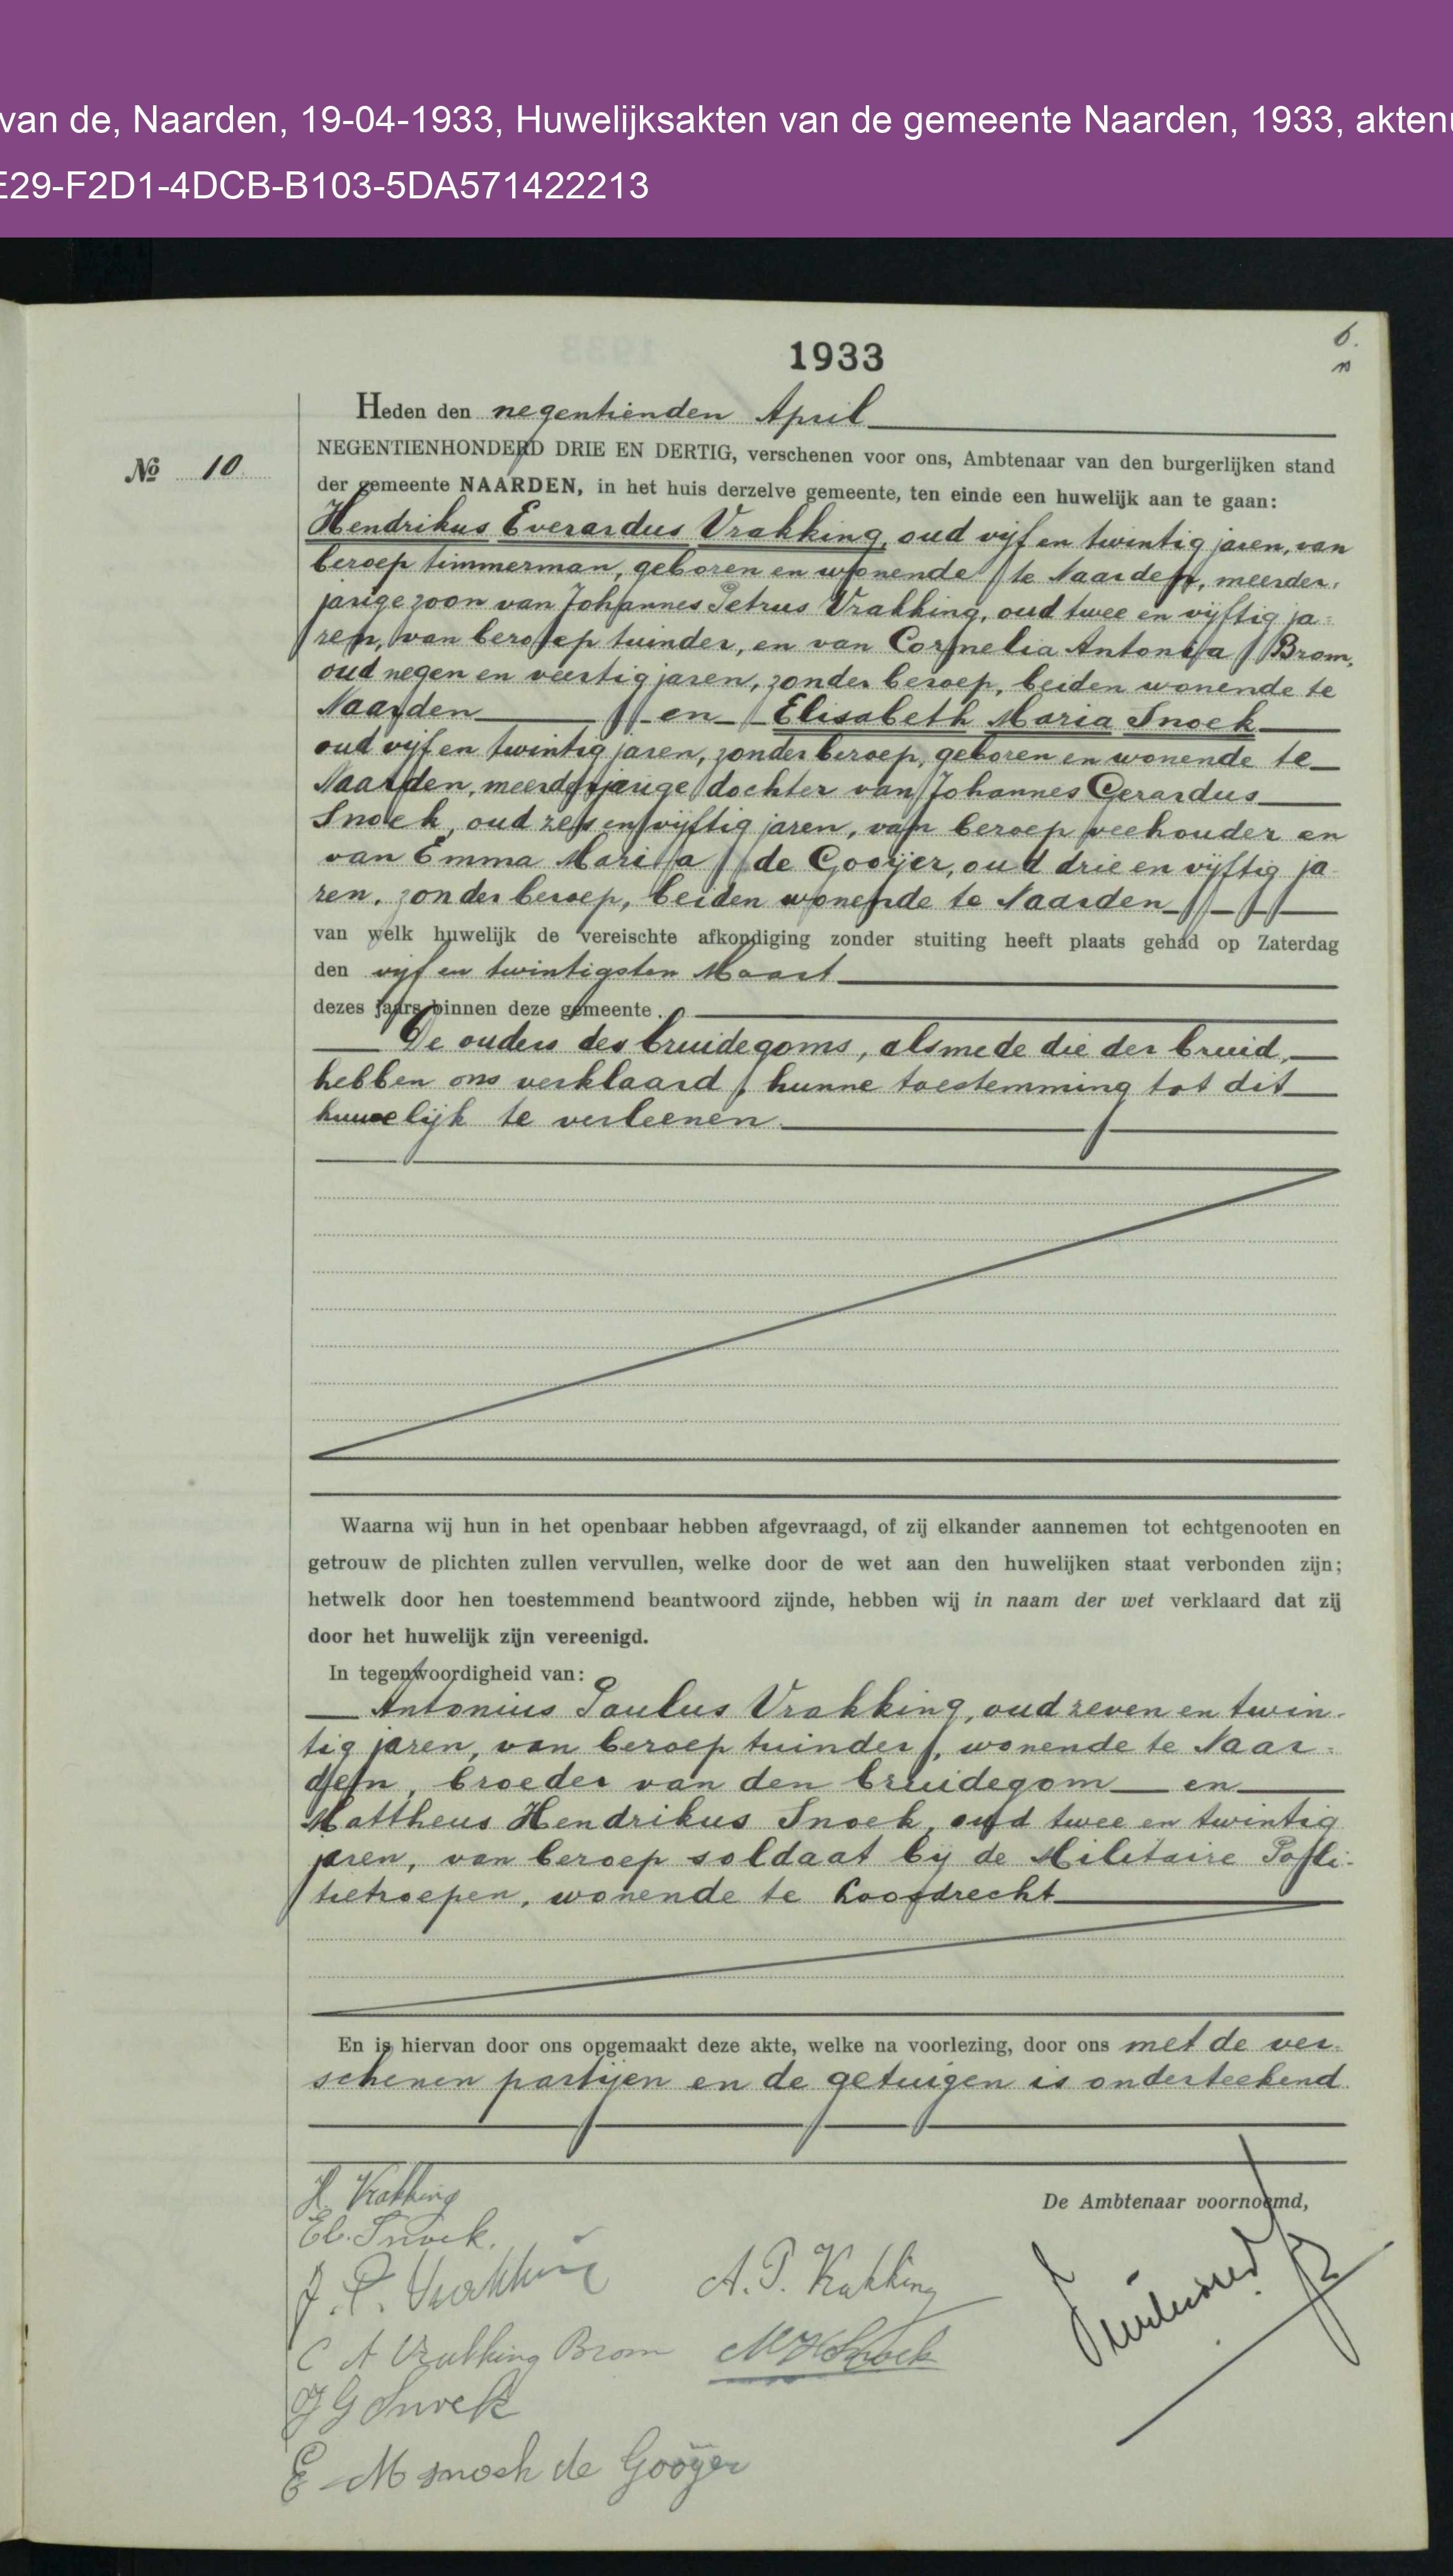 van de, Naarden, 19-04-1933, Huwelijksakten van de gemeente Naarden, 1933, aktenu
E29-F2D1-4DCB-B103-5DA571422213
6.
1933
Heden den negentienden April
NEGENTIENHONDERD DRIE EN DERTIG, verschenen voor ons, Ambtenaar van den burgerlijken stand
№ 10
der gemeente NAARDEN, in het huis derzelve gemeente, ten einde een huwelijk aan te gaan:
Hendrikus Everardus Vrakking, oud vijf en twintig jaren, van
beroep timmerman, geboren en wonende te Naarden, meerder-
jarige zoon van Johannes Petrus Vrakking, oud twee en vijftig ja=
ren, van beroep tuinder, en van Cornelia Antonia Brom,
oud negen en veertig jaren, zonder beroep, beiden wonende te
Naarden en Elisabeth Maria Snoek
oud vijf en twintig jaren, zonder beroep, geboren en wonende te
Naarden, meerderjarige dochter van Johannes Gerardus
Snoek, oud zes en vijftig jaren, van beroep veehouder en
van Emma Maria de Gooijer, oud drie en vijftig ja
ren, zonder beroep, beiden wonende te Naarden
van welk huwelijk de vereischte afkondiging zonder stuiting heeft plaats gehad op Zaterdag
den vijf en twintigsten Maart
dezes jaars binnen deze gemeente.
De ouders des bruidegoms, alsmede die der bruid,
hebben ons verklaard, hunne toestemming tot dit
huwelijk te verleenen.
Waarna wij hun in het openbaar hebben afgevraagd, of zij elkander aannemen tot echtgenooten en
getrouw de plichten zullen vervullen, welke door de wet aan den huwelijken staat verbonden zijn;
hetwelk door hen toestemmend beantwoord zijnde, hebben wij in naam der wet verklaard dat zij
door het huwelijk zijn vereenigd.
In tegenwoordigheid van:
Antonius Paulus Vrakking, oud zeven en twin-
tig jaren, van beroep tuinder, wonende te Naar=
den, broeder van den bruidegom en
Mattheus Hendrikus Snoek, oud twee en twintig
jaren, van beroep soldaat bij de Militaire Poli-
tietroepen, wonende te Loosdrecht
En is hiervan door ons opgemaakt deze akte, welke na voorlezing, door ons met de ver-
schenen partijen en de getuigen is onderteekend.
De Ambtenaar voornoemd,
H. Vrakking
El. Snoek.
J. P. Vrakking
A. P. Vrakking
C A Vrakking Brom
M H Snoek
J G Snoek
E M Snoek de Gooijer